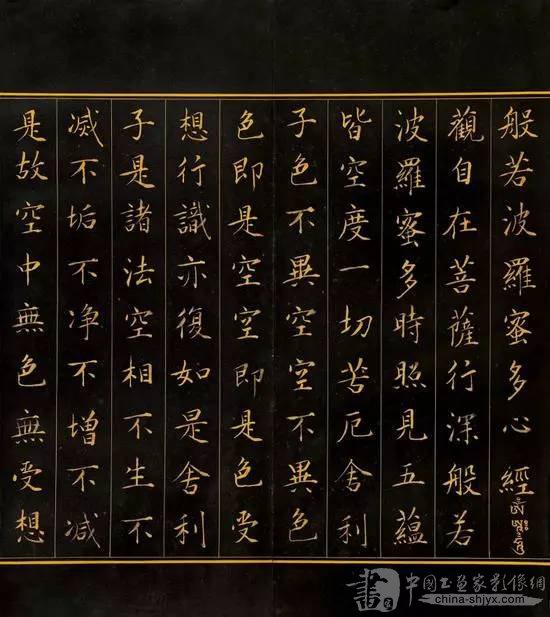 般若波羅蜜多心經
觀自在菩薩行深般若
波羅蜜多時照見五蘊
皆空度一切苦厄舍利
子色不異空空不異色
色即是空空即是色受
想行識亦復如是舍利
子是諸法空相不生不
滅不垢不净不增不減
是故空中無色無受想
書
中國書畫家影像網
china-shjyx.com